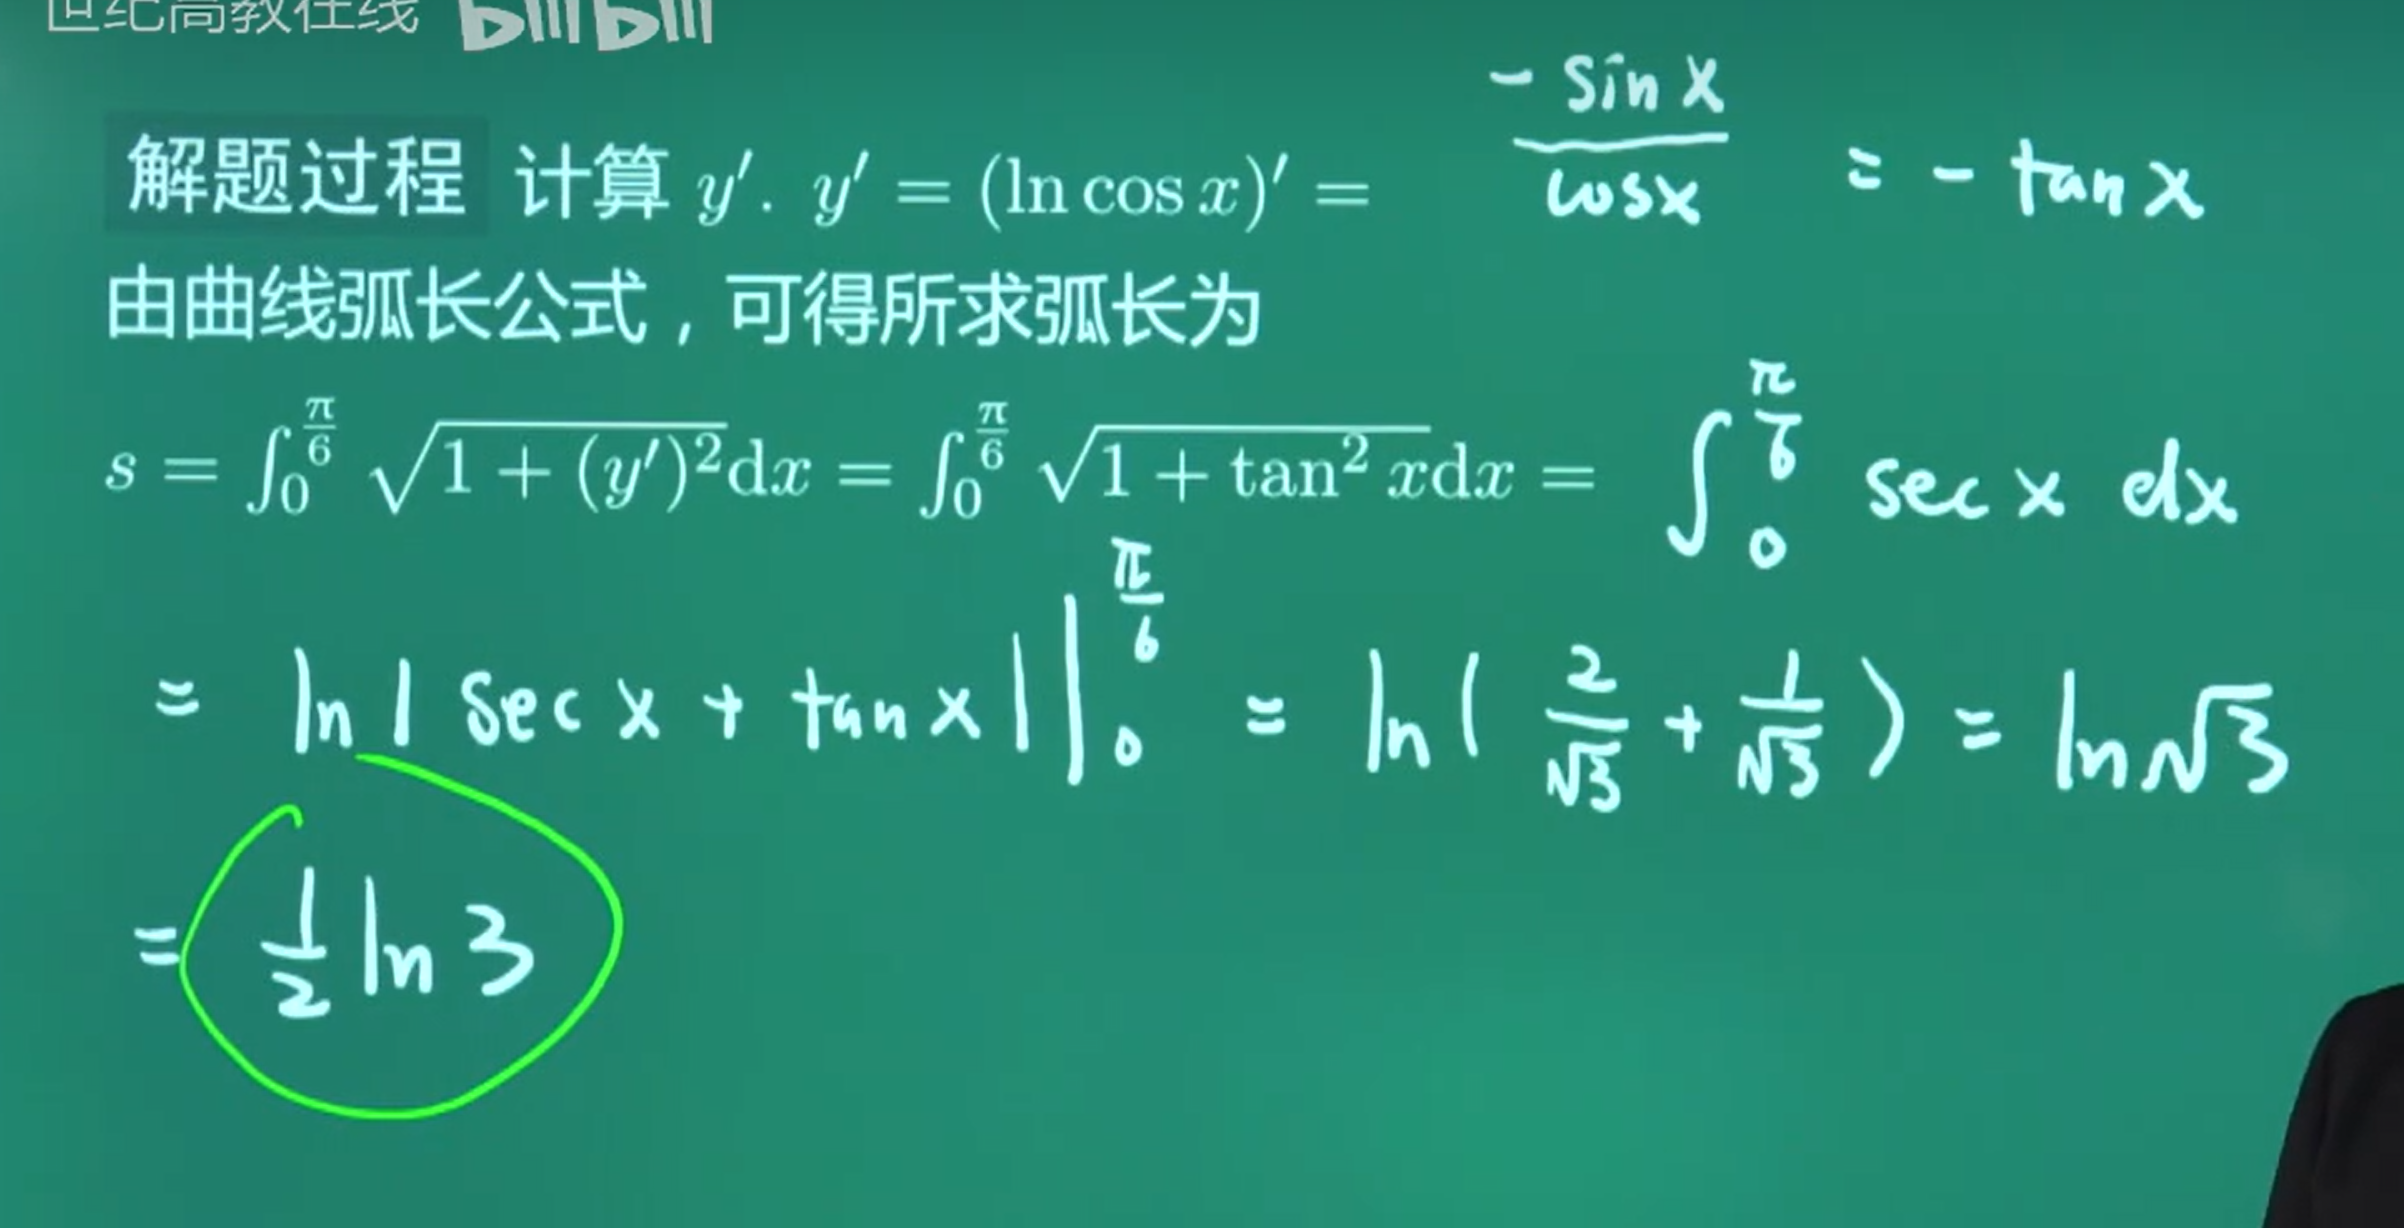 世纪高教在线 bilibili
解题过程 计算 y′. y′ = (ln cos x)′ = -sin x / cos x = - tan x
由曲线弧长公式，可得所求弧长为
s = ∫₀^{π/6} √(1 + (y′)²)dx = ∫₀^{π/6} √(1 + tan² x)dx = ∫₀^{π/6} sec x dx
= ln | sec x + tan x | |₀^{π/6} = ln ( 2/√3 + 1/√3 ) = ln√3
= 1/2 ln 3